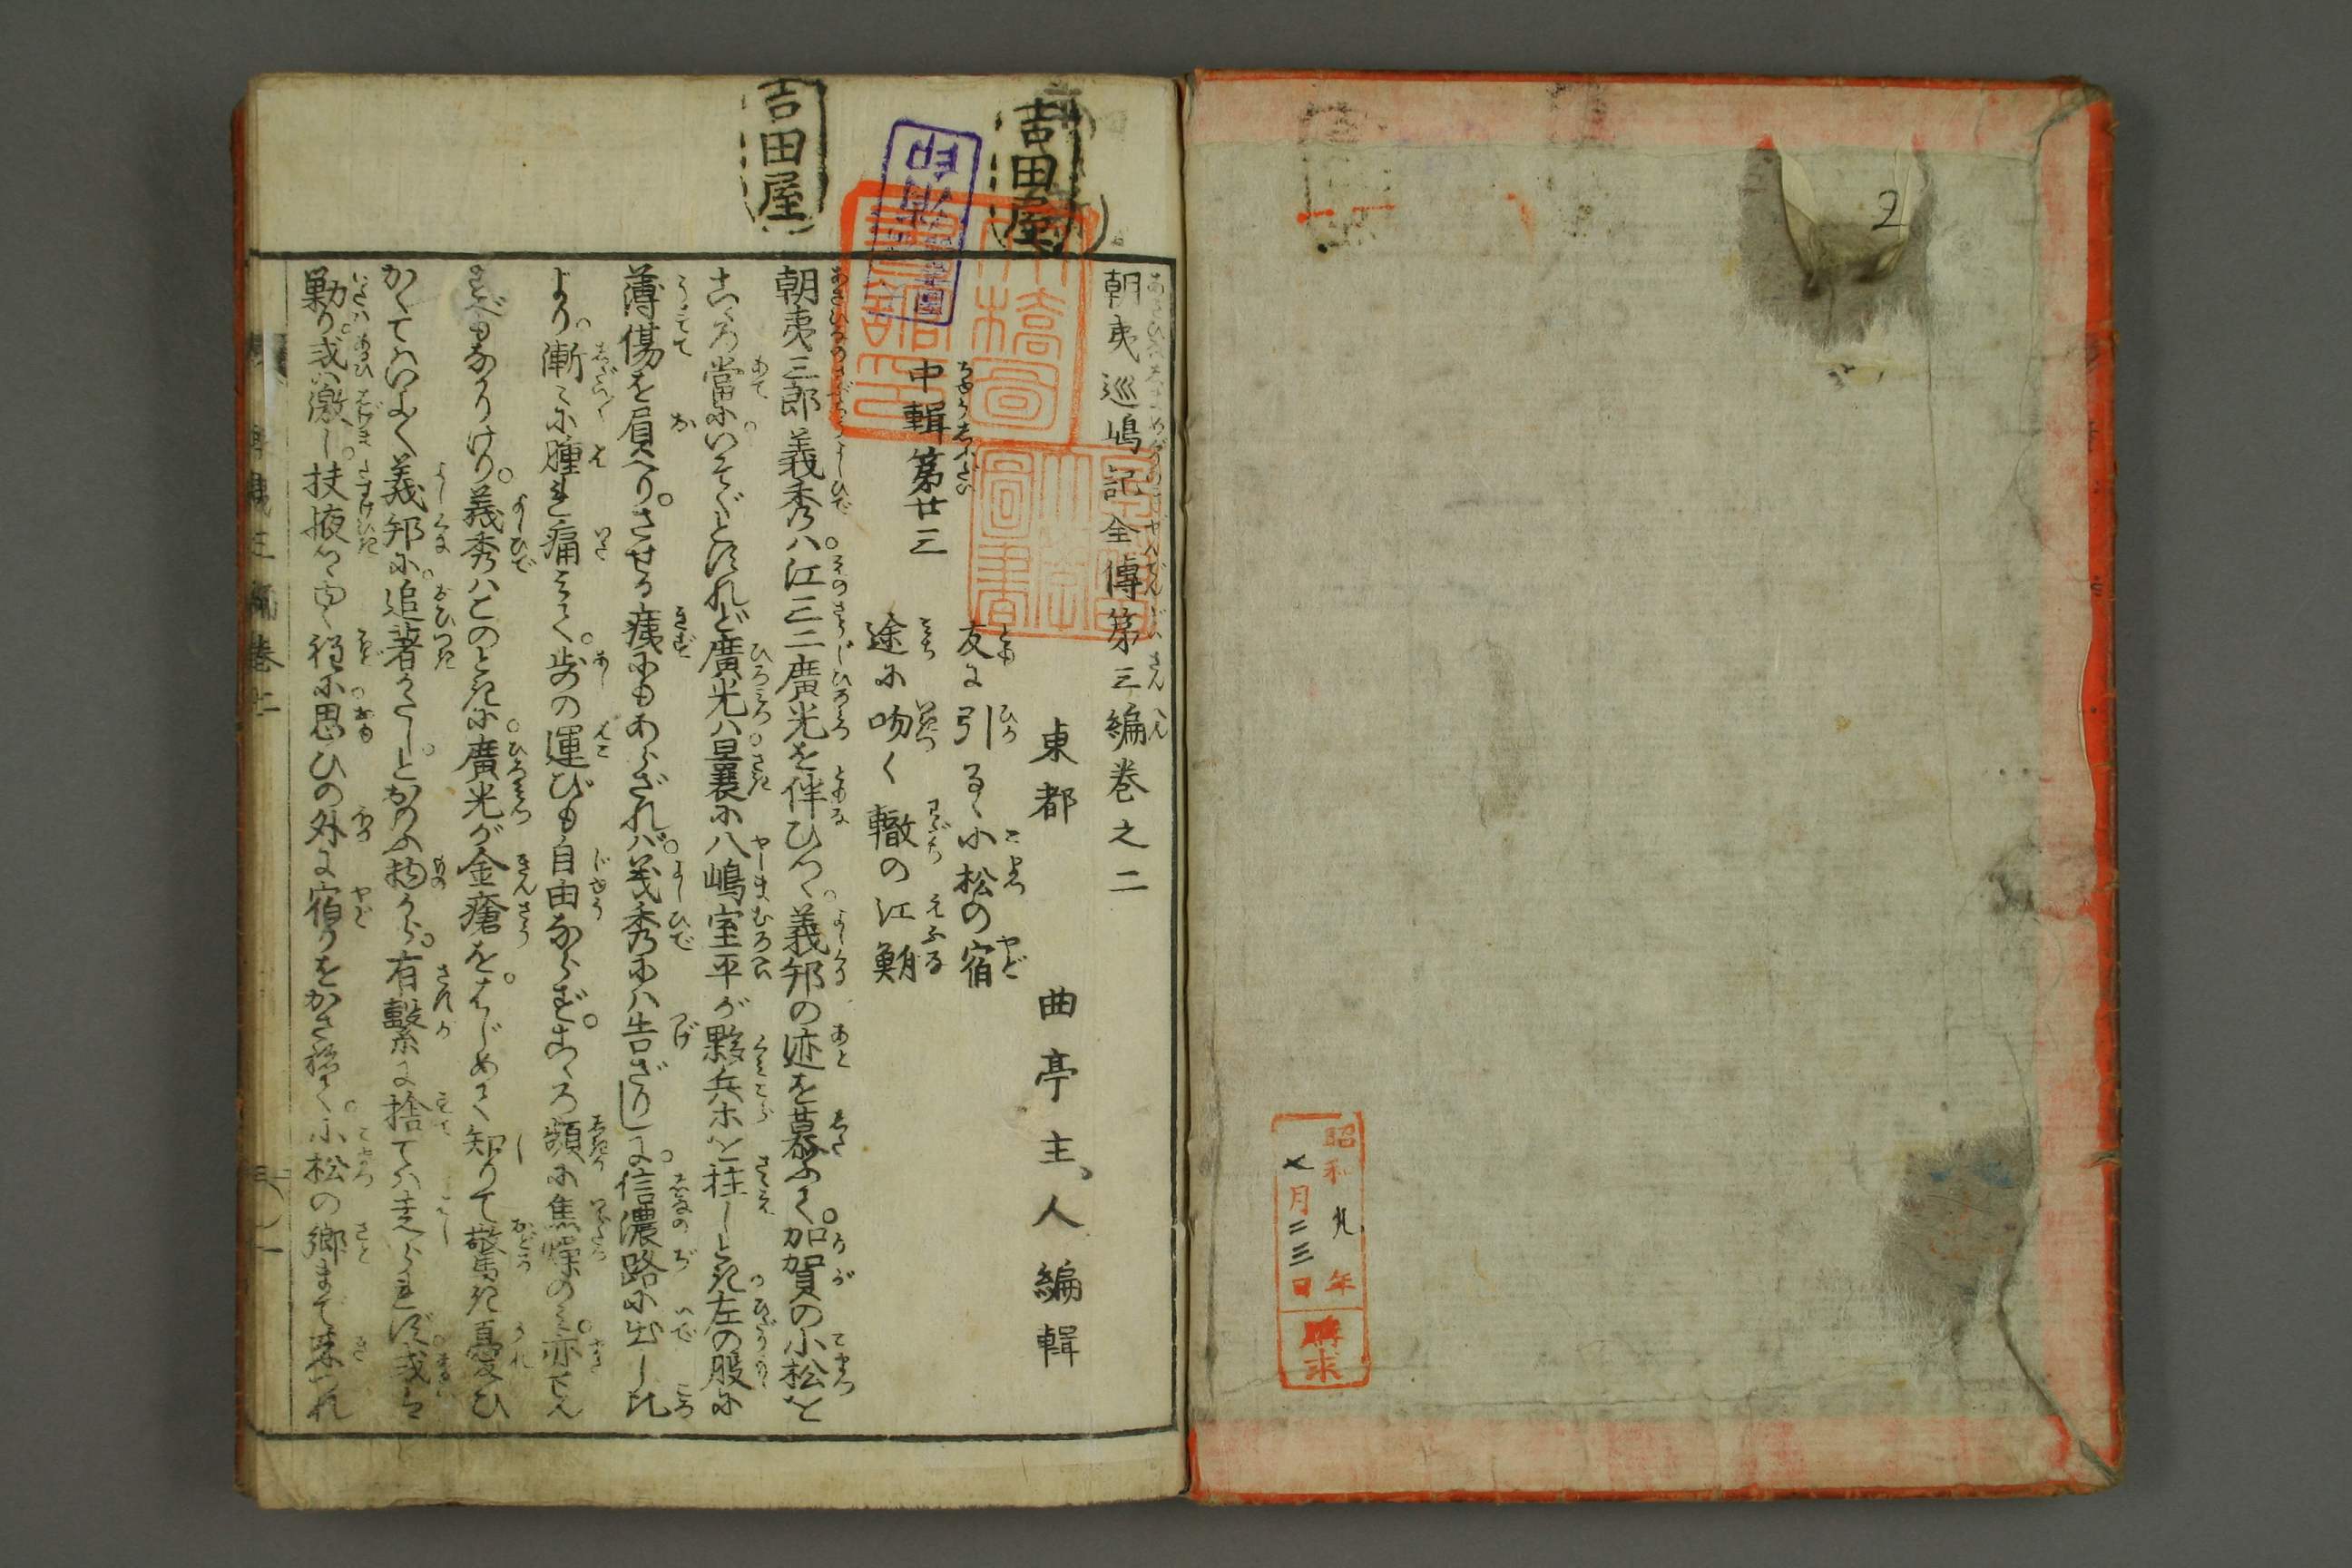 2
昭和九年
七月二三日
購求
吉田屋
吉田屋
朝夷巡嶋記全傳第三編巻之二
東都 曲亭主人編輯
中輯第廿三
友に引るゝ小松の宿
途に吻く轍の江鮒
朝夷三郎義秀ハ。江三二廣光を伴ひつゝ。義邦の迹を慕ふて。加賀の小松を
こゝろ當に。いそぐとすれど廣光ハ曩に八嶋室平が夥兵ホを拄しとき左の股に
薄傷を肩へり。させる痍にもあらざれバ。義秀にハ告ざりしに。信濃路に出し比
より。漸々に腫れ痛みて。歩の運びも自由ならず。こゝろ頻に焦燥のミ。亦せん
すべもなかりけり。義秀ハこのときに。廣光が金瘡を。はじめて知りて驚き憂ひ
かくてハいよゝ義邦に。追著がたし。とおもふ物から。有繋に捨てハ走られず。或は
勦り。或ハ激し。扶掖つゝゆく程に。思ひの外に宿りをかさねて。小松の郷まで来つれ